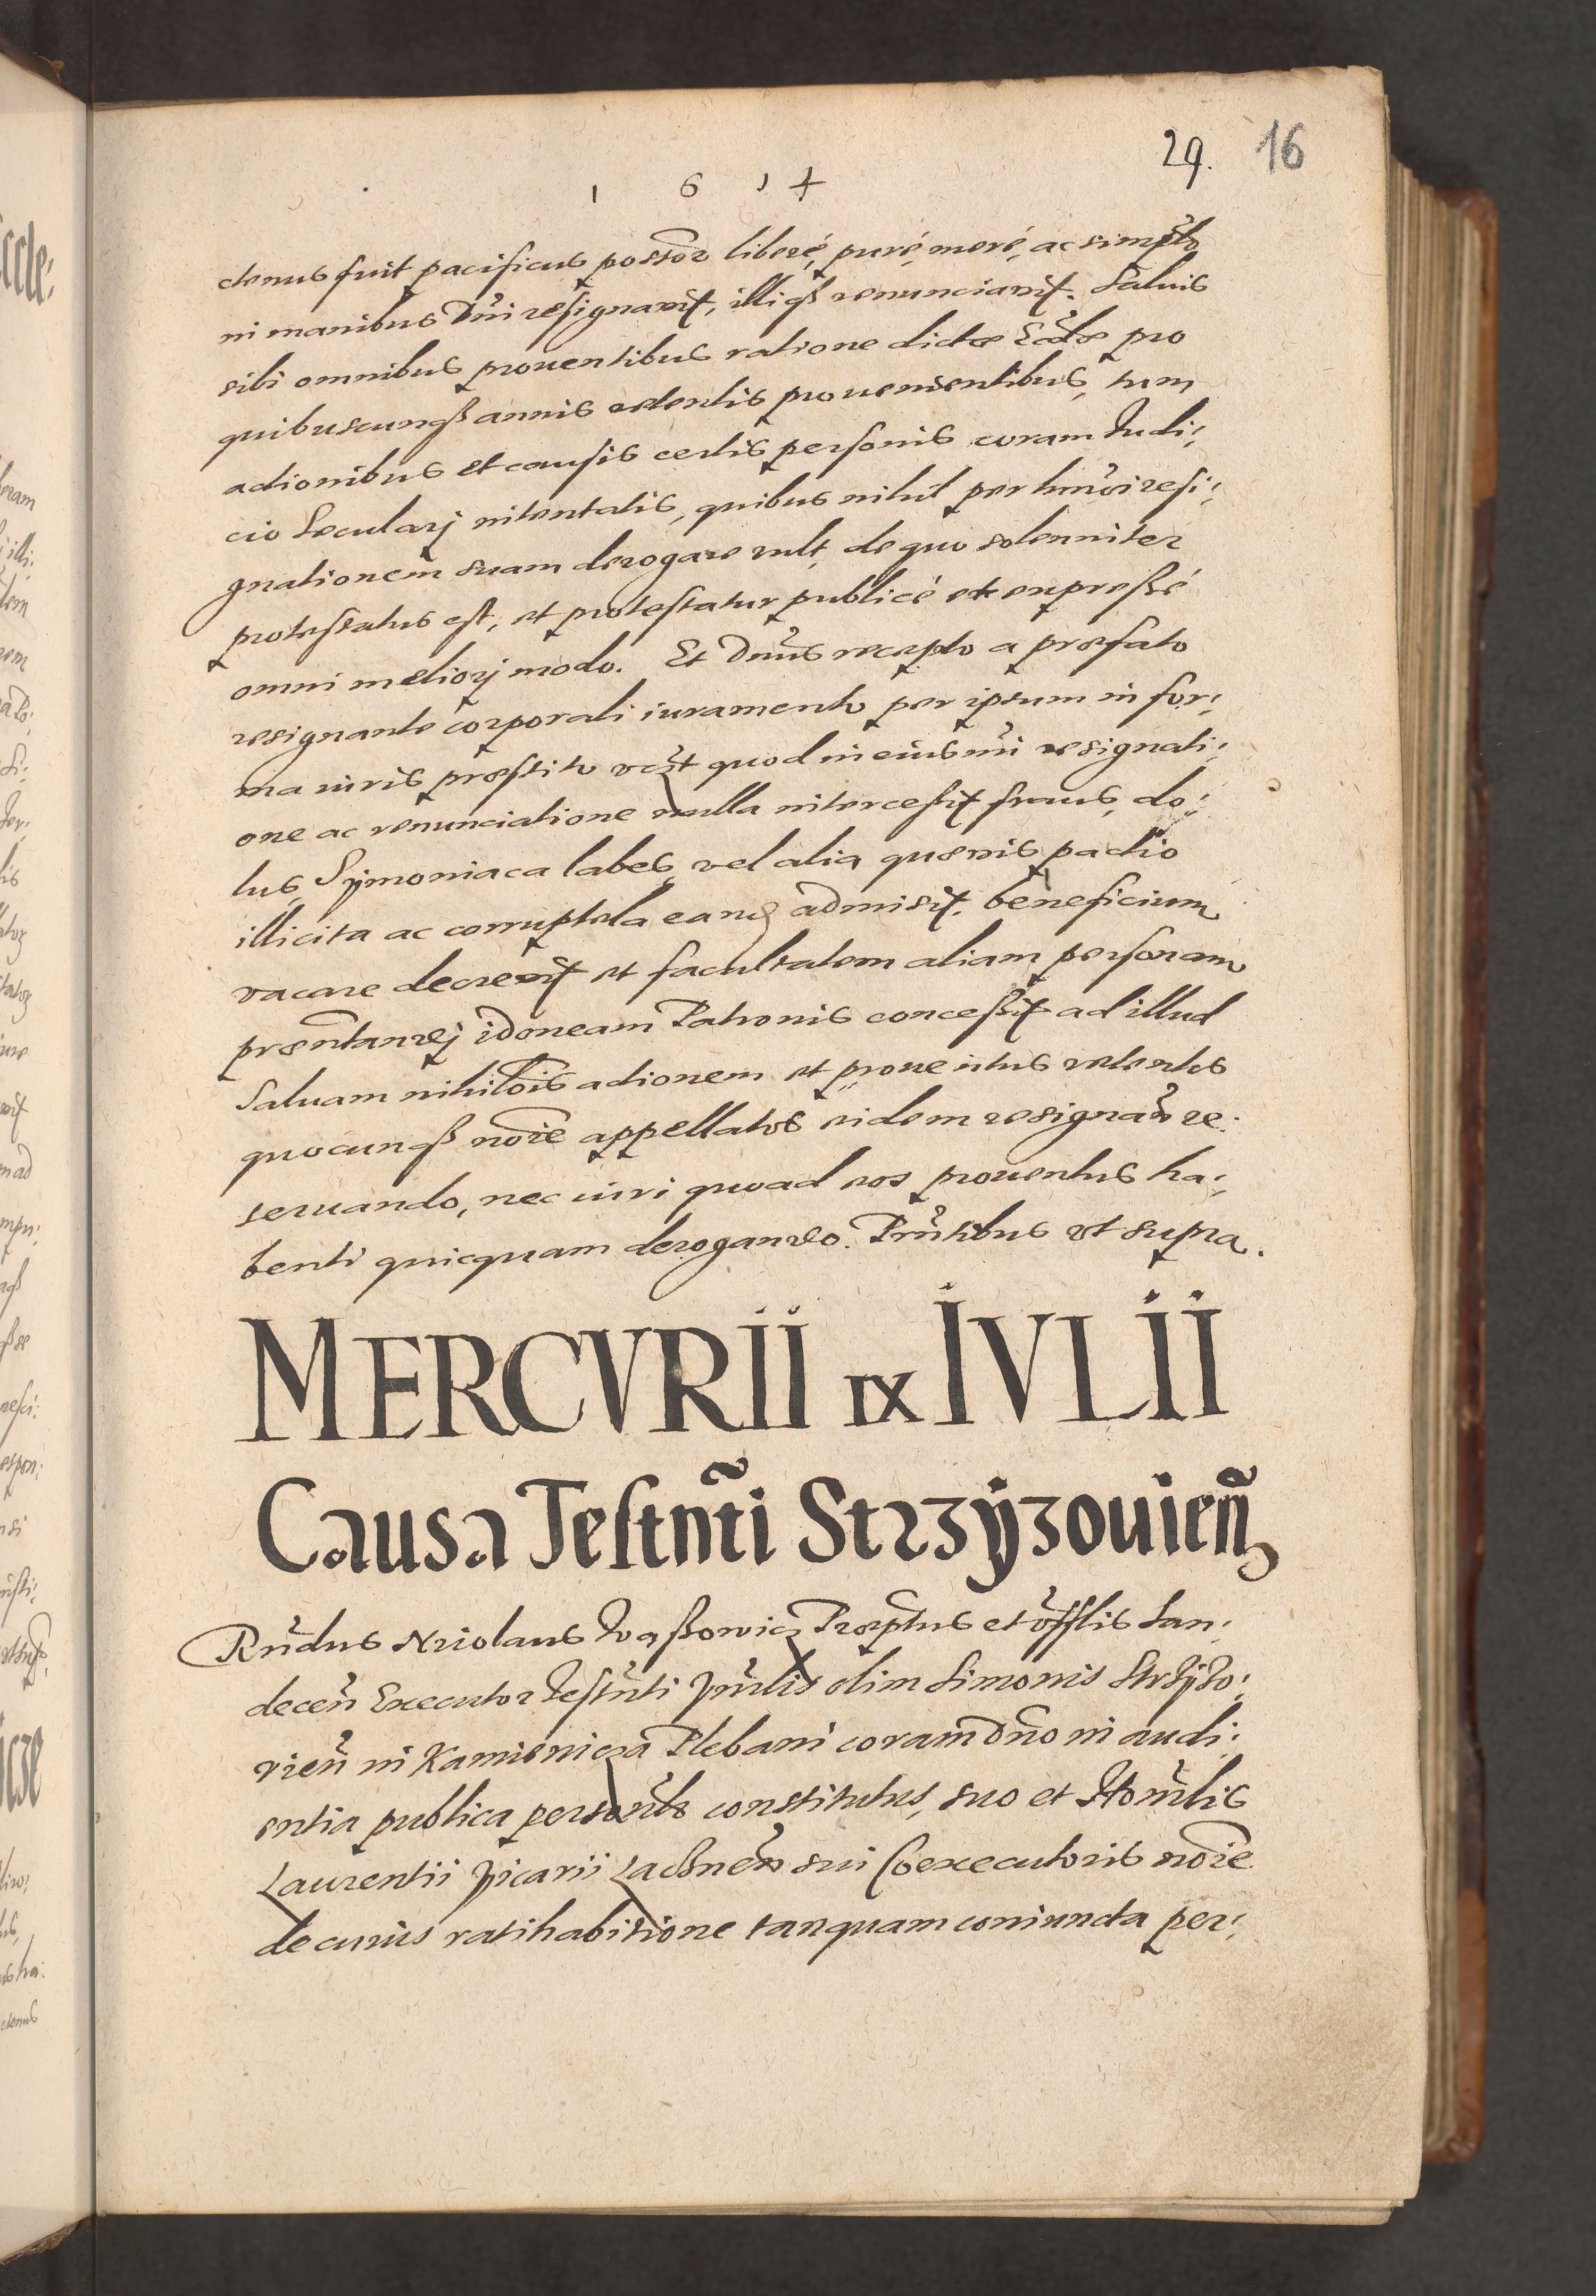 29. 16
1 6 1 4
ctenus fuit pacificus possor liberé, puré, meré, ac simplr
in manibus Dni resignavit, illiqß renunciavit. Saluis
sibi omnibus prouentibus ratione dictæ Ecclæ pro
quibuscunqß annis retentis prouenientibus, tum
actionibus et causis certis personis coram Iudi:
cio Secularj intentatis, quibus nihil per hmoi resi:
gnationem suam derogare vult, de quo solenniter
protestatus est, et protestatur publicé et expreßé
omni meliorj modo. Et Dnus recepto a præfato
resignante corporali iuramento per ipsum in for:
ma iuris præstito quod in eiusmi resignati:
one ac renunciatione nulla interceßit fraus, do:
lus, Sÿmoniaca labes, vel alia quævis pactio
illicita ac corruptela eand admisit. beneficium
vacare decrevit et facultatem aliam personam
præntandj idoneam Patronis conceßit ad illud
Saluam nihilois actionem et prouentus retentos
quocunqß noie appellatos eidem resignan re:
seruando, nec iuri quoad eos prouentus ha:
benti quicquam derogando. Prntibus vt supra.
MERCVRII IX IVLII
Causa Testmti Strzÿzouien
Rndus Nicolaus Præptus et offlis San:
decen Executor Testmti olim Simonis Strzÿzo:
vien in Kamienicza Plebani coram Dno in audi:
entia publica personlr constitutus, suo et Honlis
Laurentii Vicarii sui Coexecutoris noie
de cuius ratihabitione tanquam coniuncta per: